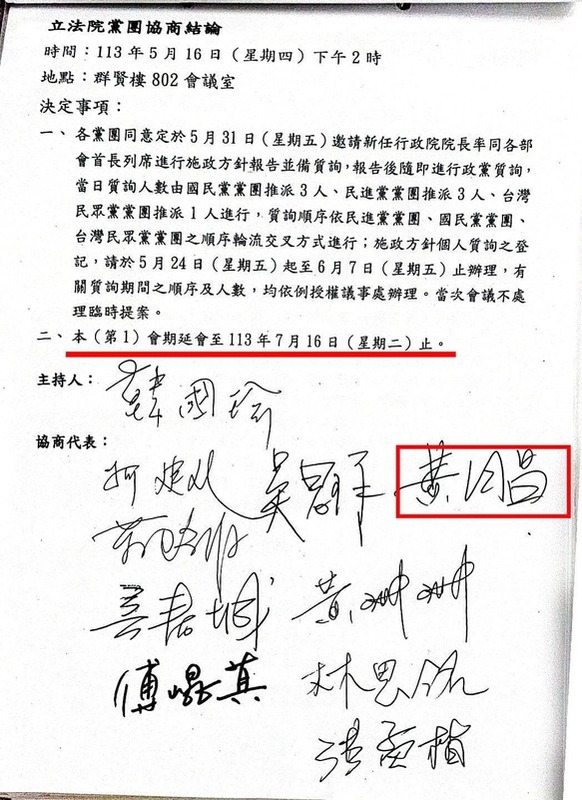 立法院黨團協商結論
時間：113年5月16日（星期四）下午2時
地點：群賢樓802會議室
決定事項：
一、各黨團同意定於5月31日（星期五）邀請新任行政院院長率同各部
會首長列席進行施政方針報告並備質詢，報告後隨即進行政黨質詢，
當日質詢人數由國民黨黨團推派3人、民進黨黨團推派3人、台灣
民眾黨黨團推派1人進行，質詢順序依民進黨黨團、國民黨黨團、
台灣民眾黨黨團之順序輪流交叉方式進行；施政方針個人質詢之登
記，請於5月24日（星期五）起至6月7日（星期五）止辦理，有
關質詢期間之順序及人數，均依例授權議事處辦理。當次會議不處
理臨時提案。
二、本（第1）會期延會至113年7月16日（星期二）止。
主持人：韓國瑜
協商代表：
柯建 吳思 黃國昌
黃
傅崐萁 林思銘
洪孟楷